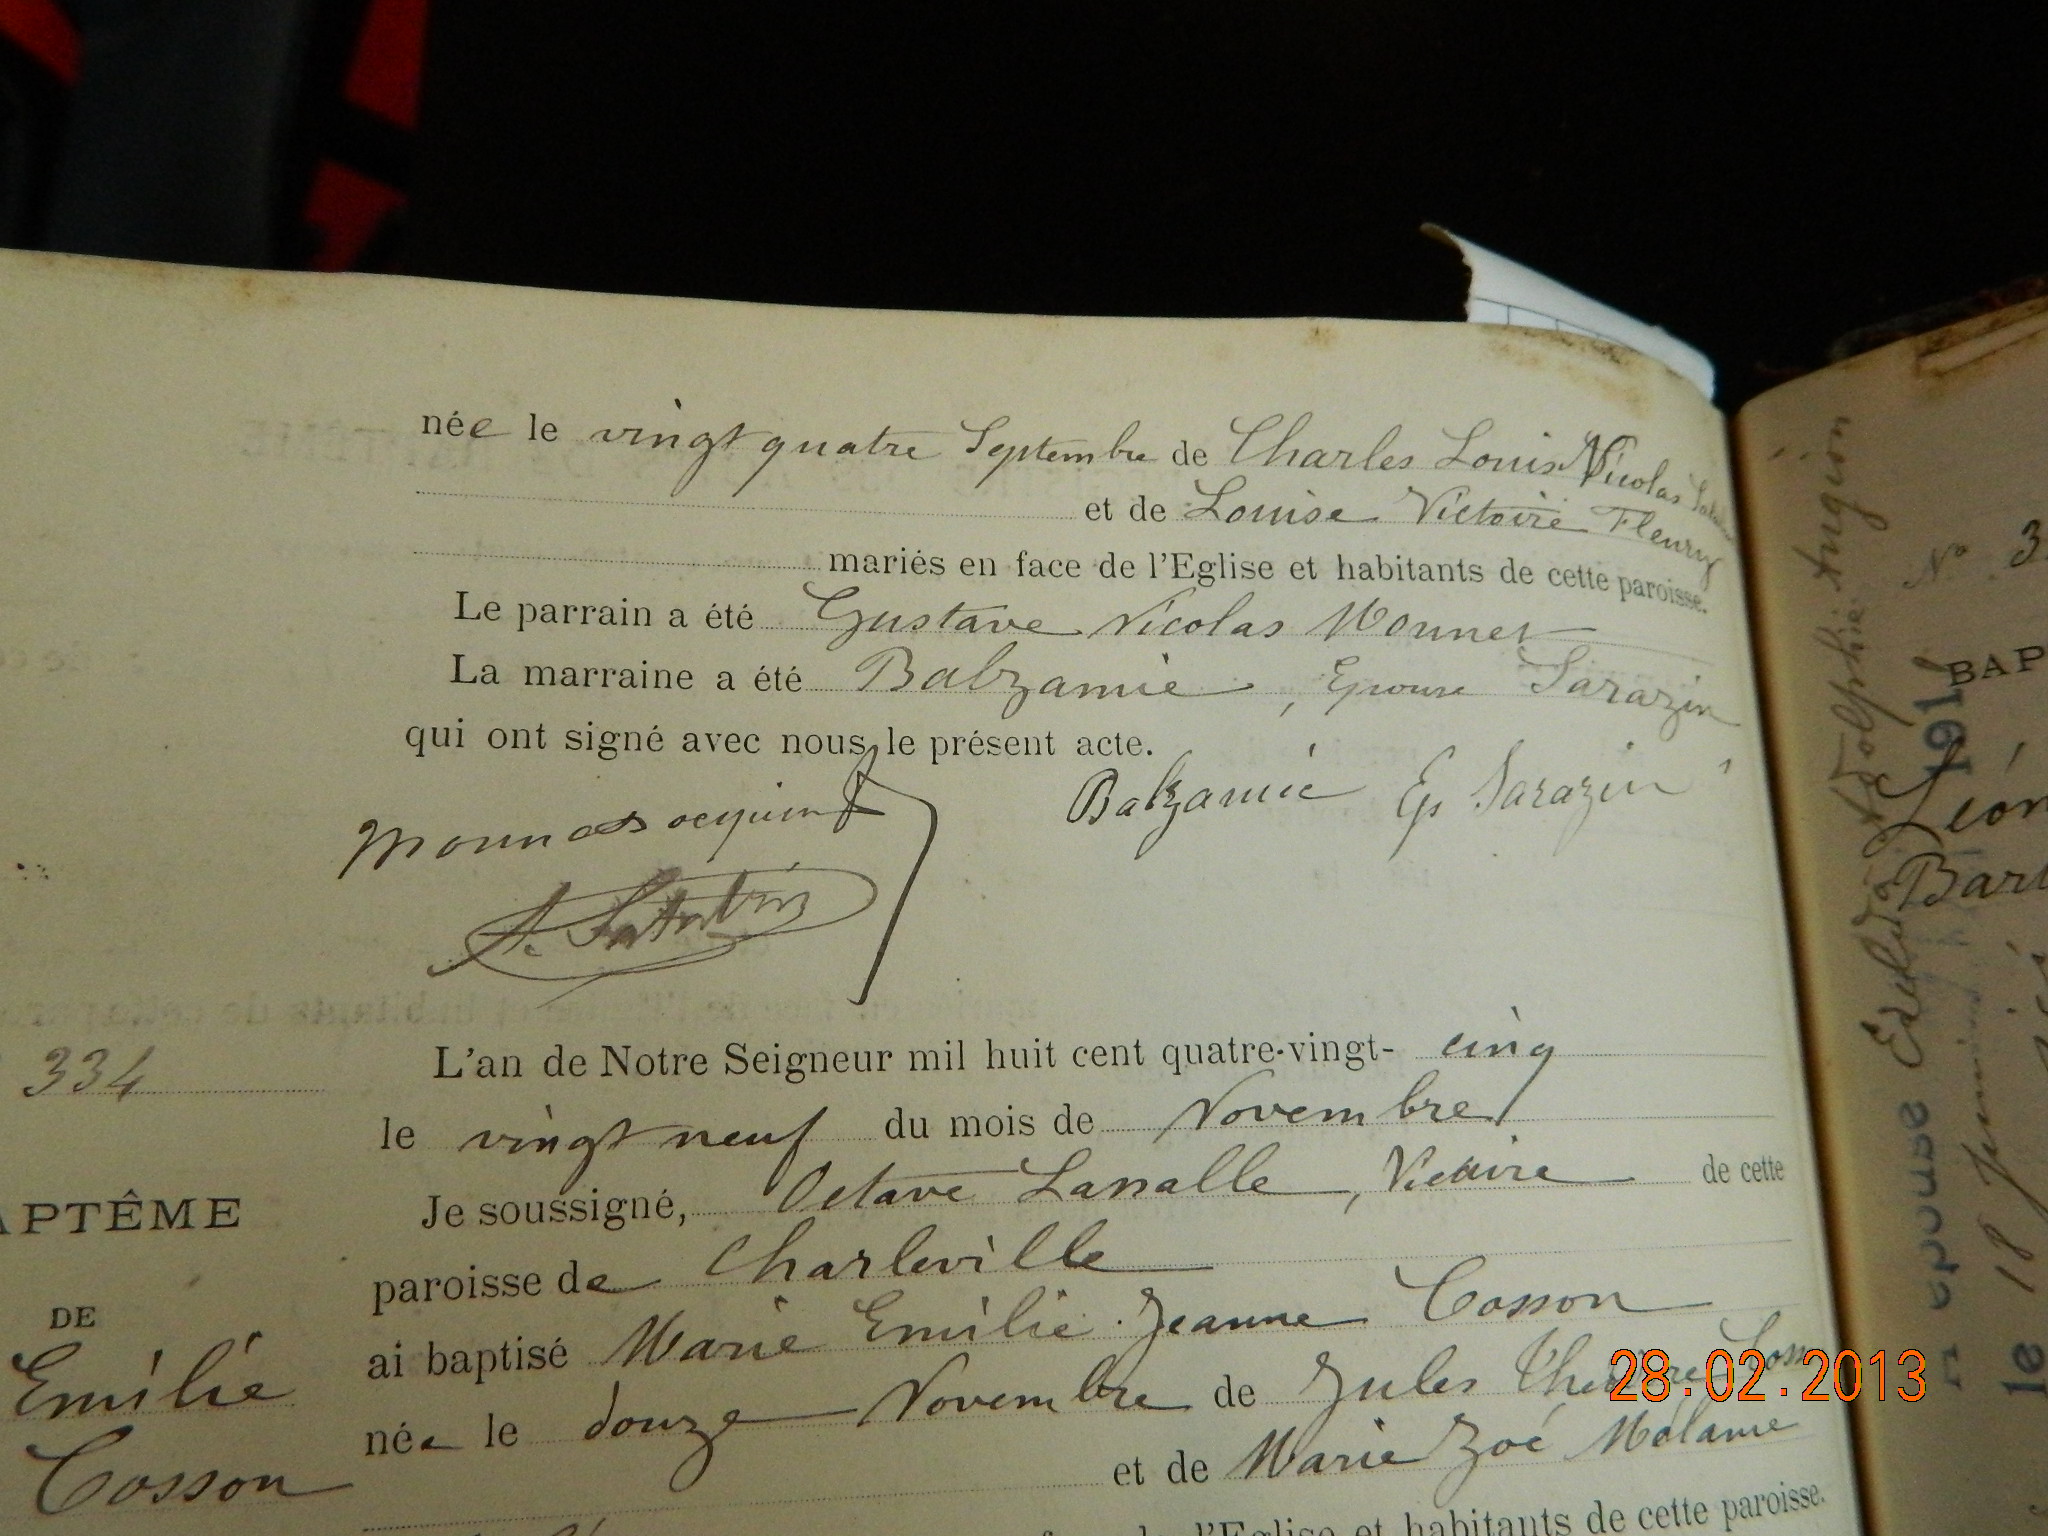 née le vingt quatre Septembre de Charles Louis Nicolas
et de Louise Victoire Fleury
mariés en face de l'Eglise et habitants de cette paroisse.
Le parrain a été Gustave Nicolas Monnet
La marraine a été Balzamie, Epouse Sarazin
qui ont signé avec nous le présent acte.
Balzamie Ep Sarazin
334
L'an de Notre Seigneur mil huit cent quatre-vingt- cinq
le vingt neuf du mois de Novembre
Je soussigné, Octave Lassalle, Vicaire de cette
paroisse de Charleville
APTÊME
DE
Emilie
Cosson
ai baptisé Marie Emilie Jeanne Cosson
née le douze Novembre de Jules Théodore Coss
et de Marie Zoé Mélanie
l'Eglise et habitants de cette paroisse.
N° 3
BAP
Léon
Bar
épouse
le 18
28.02.2013